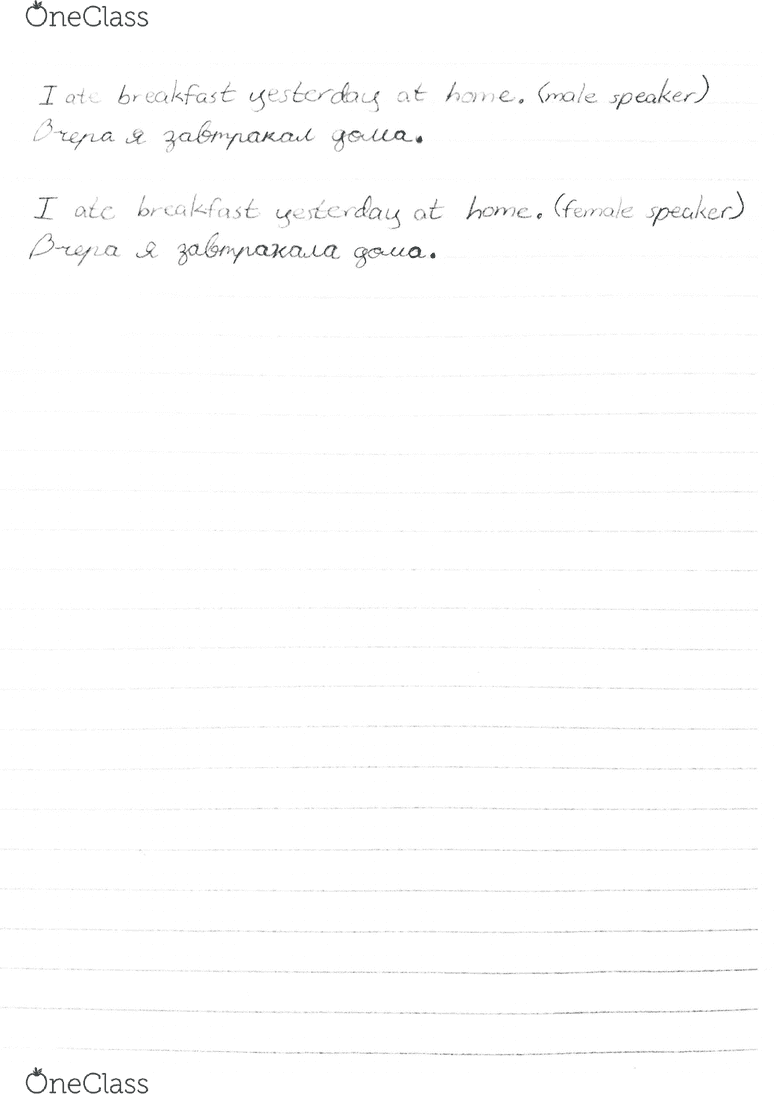 OneClass
I ate breakfast yesterday at home. (male speaker)
Вчера я завтракал дома.
I ate breakfast yesterday at home. (female speaker)
Вчера я завтракала дома.
OneClass